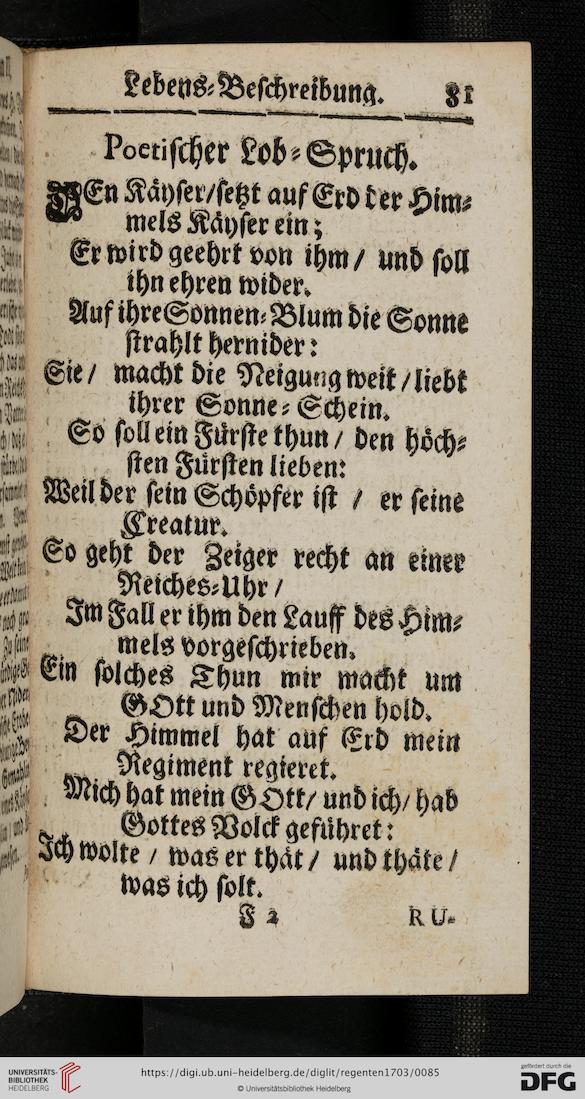 Lebens-Beschreibung. 81
Poetischer Lob-Spruch.
DEn Käyser/setzt auf Erd der Him-
mels Käyser ein;
Er wird geehrt von ihm / und soll
ihn ehren wider.
Auf ihre Sonnen-Blum die Sonne
strahlt hernider:
Sie / macht die Neigung weit / liebt
ihrer Sonne-Schein.
So soll ein Fürste thun / den höch-
sten Fürsten lieben:
Weil der sein Schöpfer ist / er seine
Creatur.
So geht der Zeiger recht an einer
Reiches-Uhr /
Im Fall er ihm den Lauff des Him-
mels vorgeschrieben.
Ein solches Thun mir macht um
GOtt und Menschen hold.
Der Himmel hat auf Erd mein
Regiment regieret.
Mich hat mein GOtt/ und ich/ hab
Gottes Volck geführet:
Ich wolte / was er thät / und thäte /
was ich solt.
F 2 RU-
UNIVERSITÄTS-
BIBLIOTHEK
HEIDELBERG
https://digi.ub.uni-heidelberg.de/diglit/regenten1703/0085
© Universitätsbibliothek Heidelberg
gefördert durch die
DFG